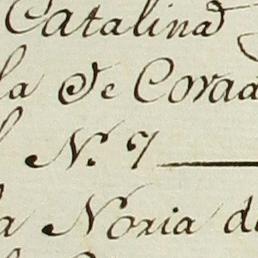 Catalina
la de Cova
N. 7
a Noria d